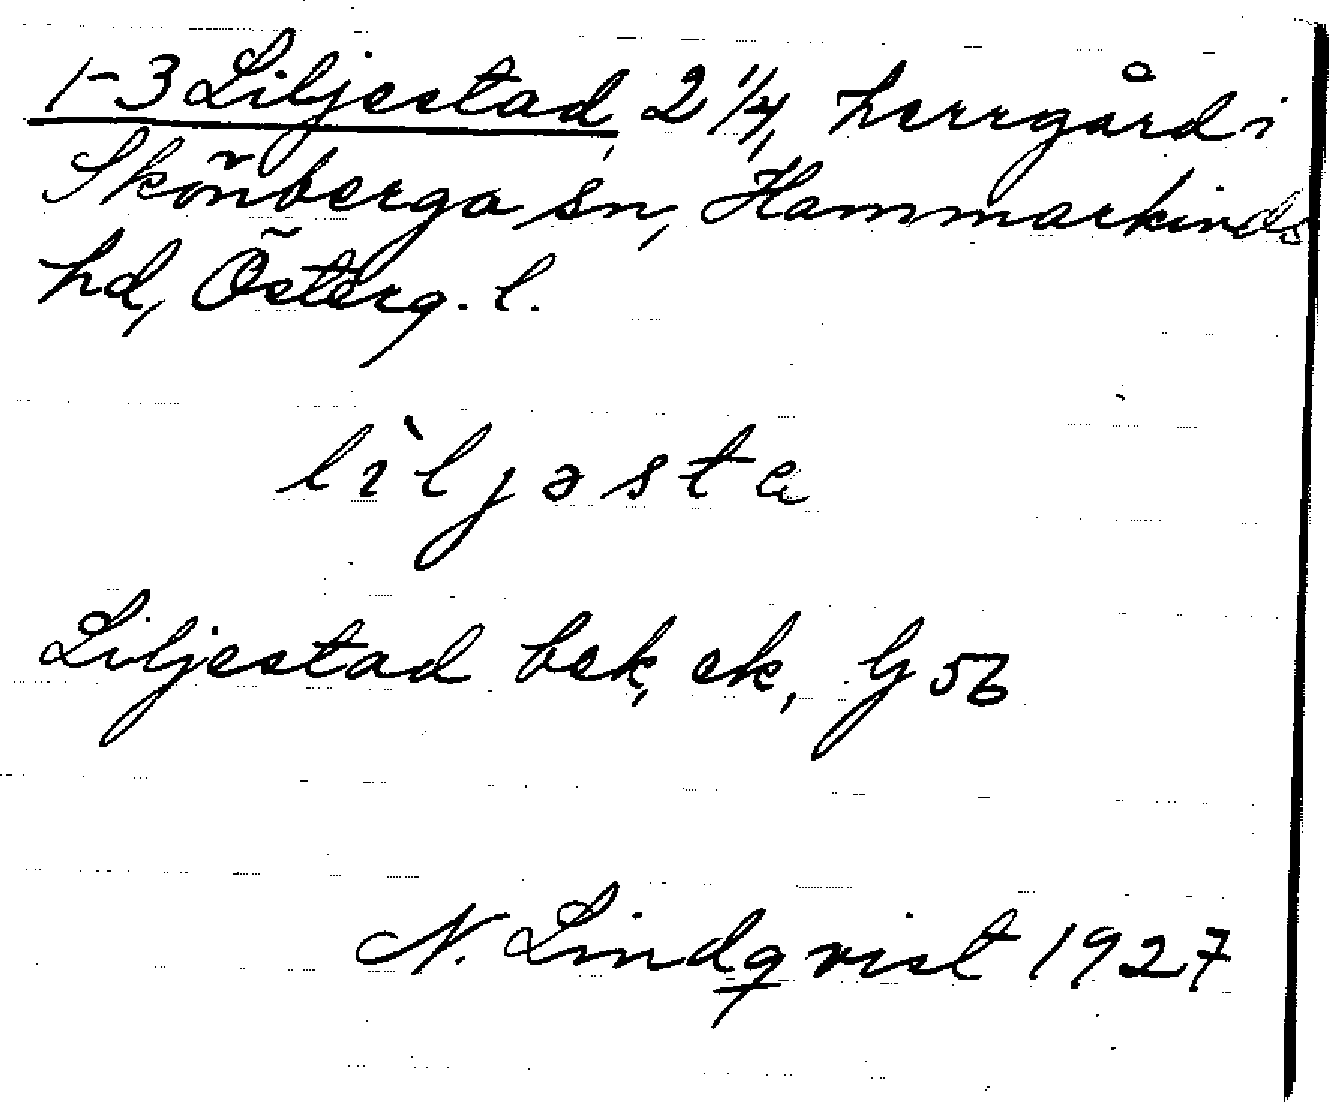 1-3 Liljestad, 2 1/4, herrgård i
Skönberga sn, Hammarkinds
hd, Österg. l.
lìljəsta
Liljestad bek, ek, Gj 56
N. Lindqvist 1927